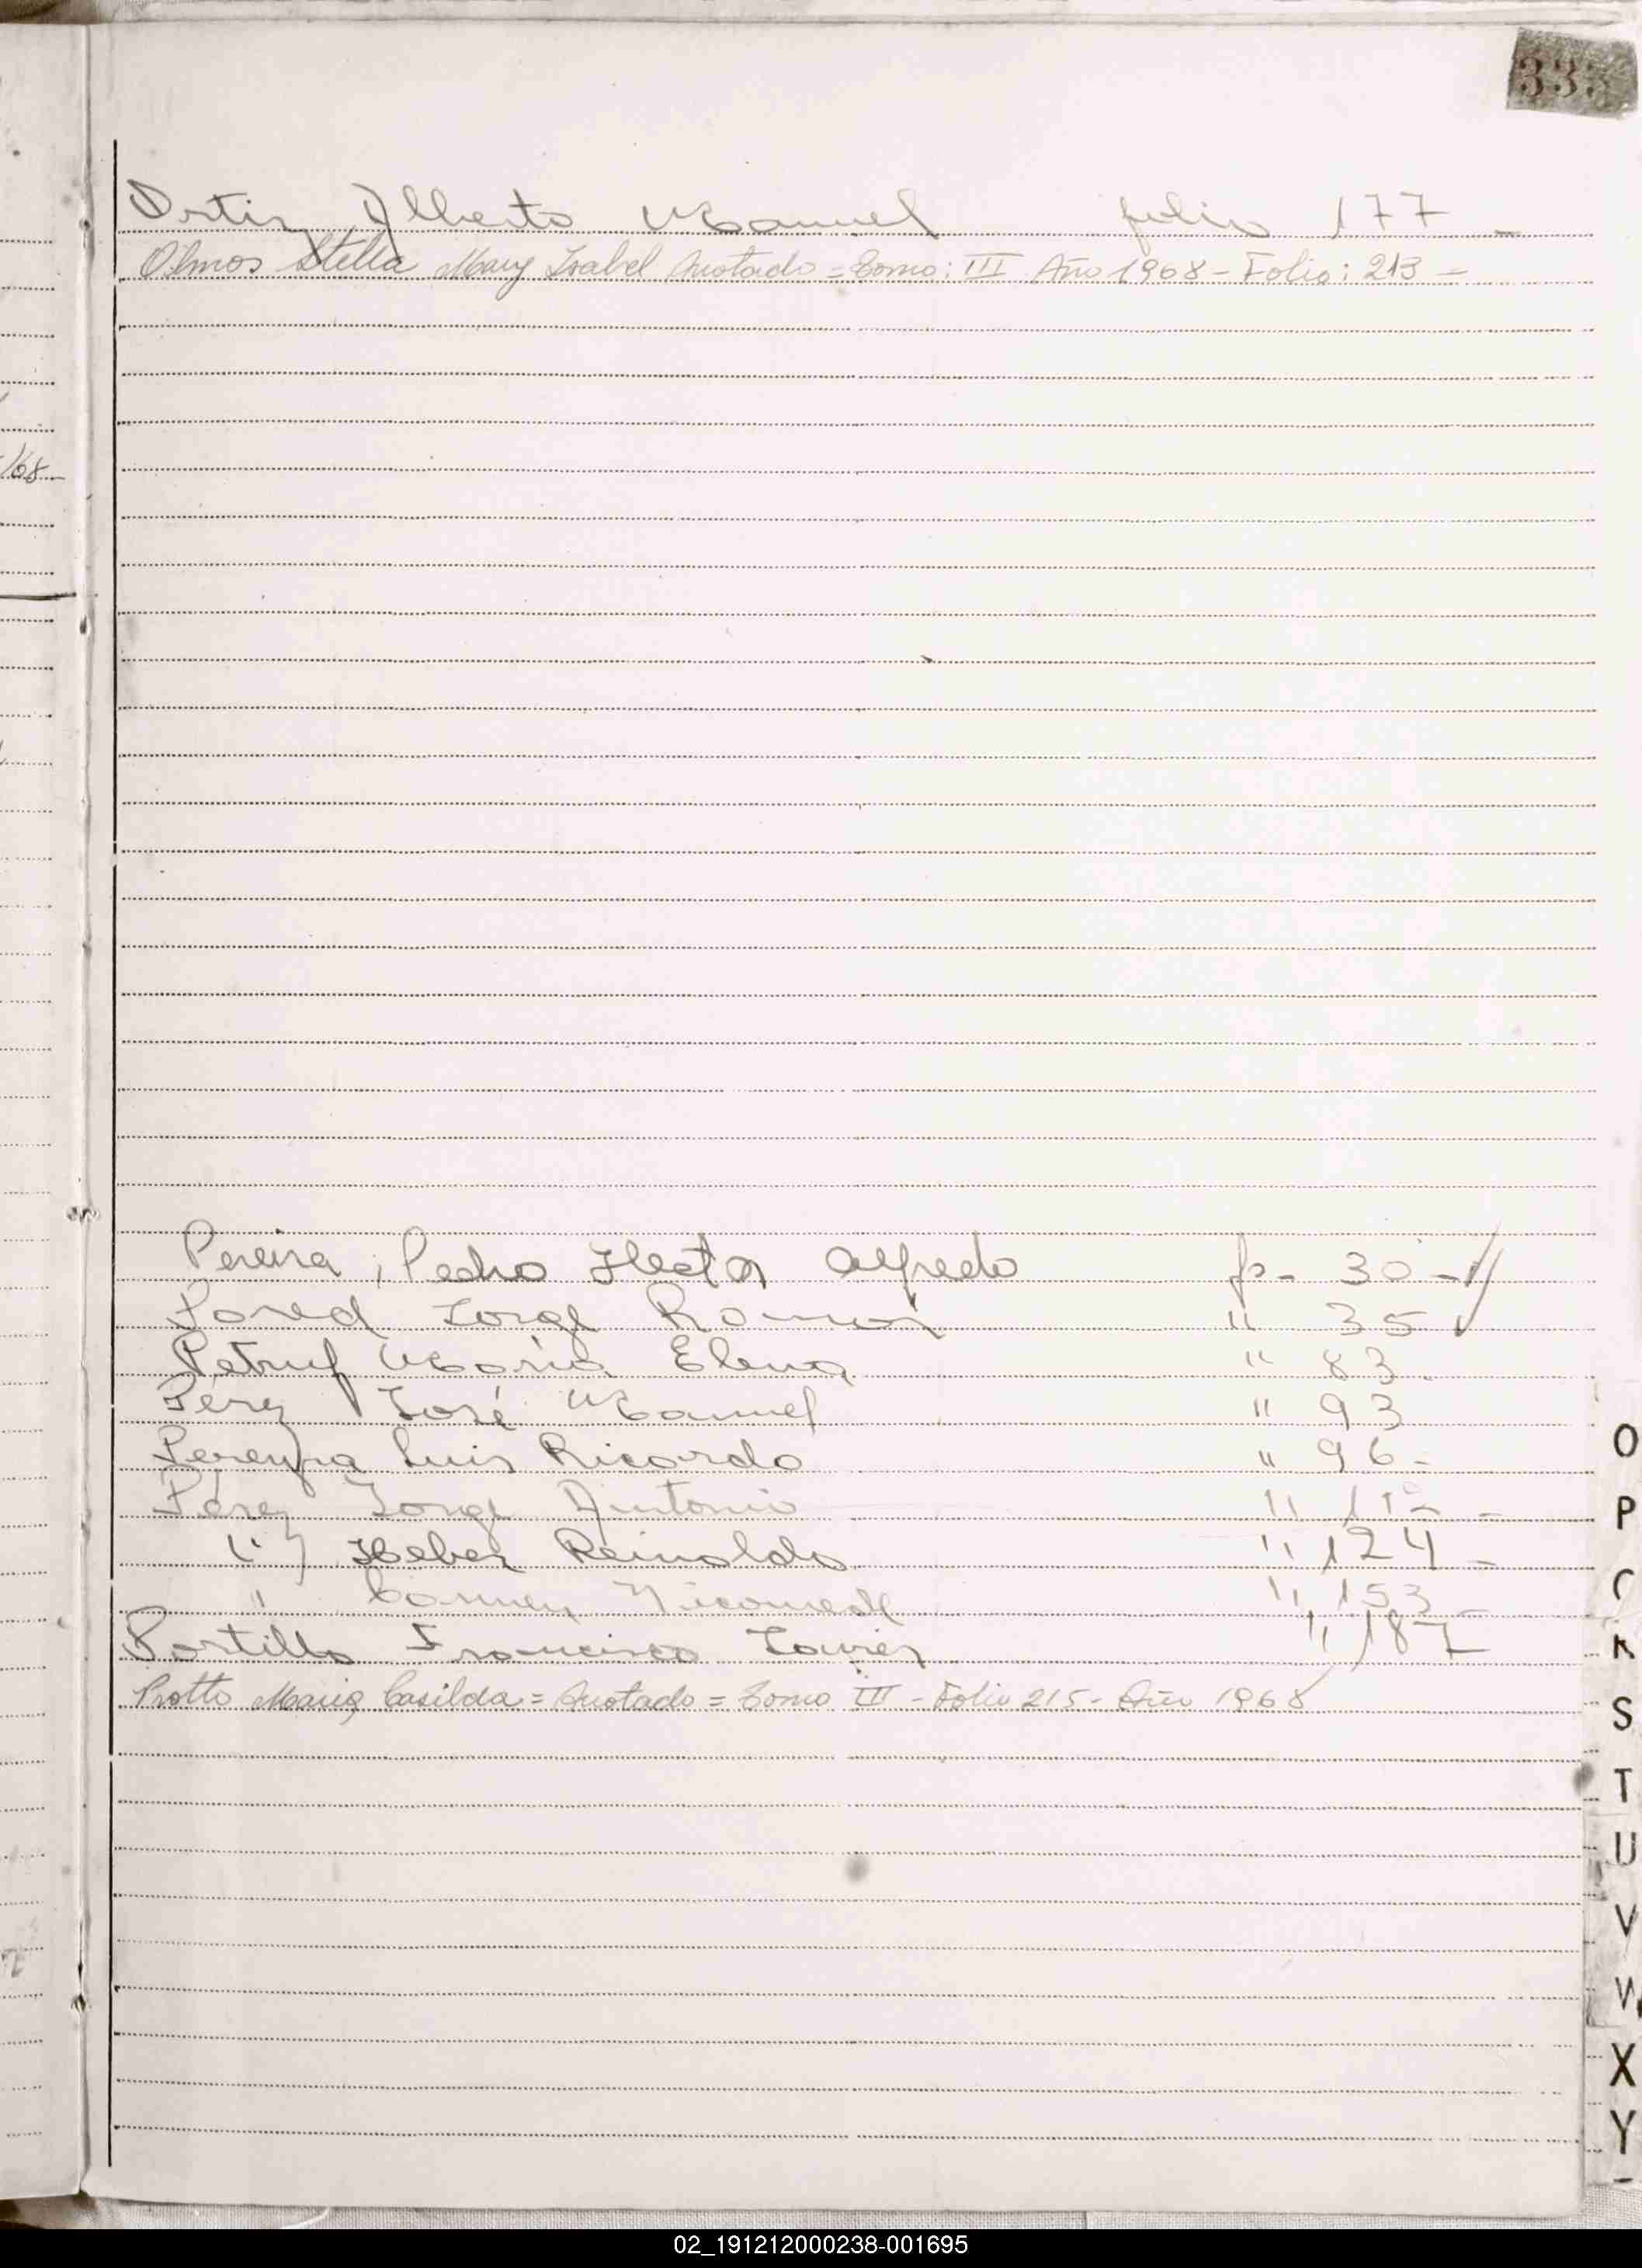 333
Ortiz Alberto Manuel folio 177 -
Olmos Stella Mary Isabel Anotado = Tomo: III Año 1968 - Folio: 213 -
/68-
Pereira, Pedro Hector Alfredo fo- 30 -
Jorge Ramón " 35
María Elena " 83
Pérez José Manuel " 93
Pereyra Luis Ricardo " 96 -
Pérez Jorge Antonio " -
" Heber Reinaldo " 124 -
" Carmen Nicomede " 153 -
Portillo Francisco Javier " 187 -
Protto Maria Casilda = Anotado = Tomo III - Folio 215 - Año 1968
O
P
R
S
T
U
V
W
X
Y
02_191212000238-001695